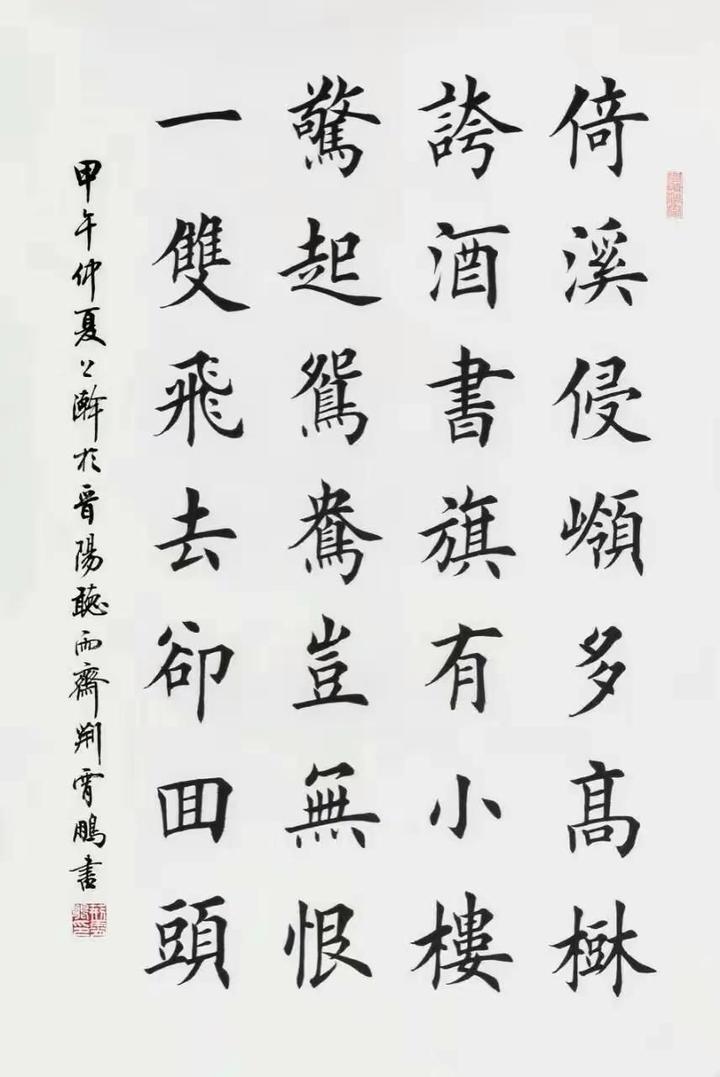 倚溪侵嶺多髙樹
誇酒書旗有小樓
驚起鴛鴦豈無恨
一雙飛去卻囬頭
甲午仲夏上澣於晉陽聽雨齋荊霄鵬書